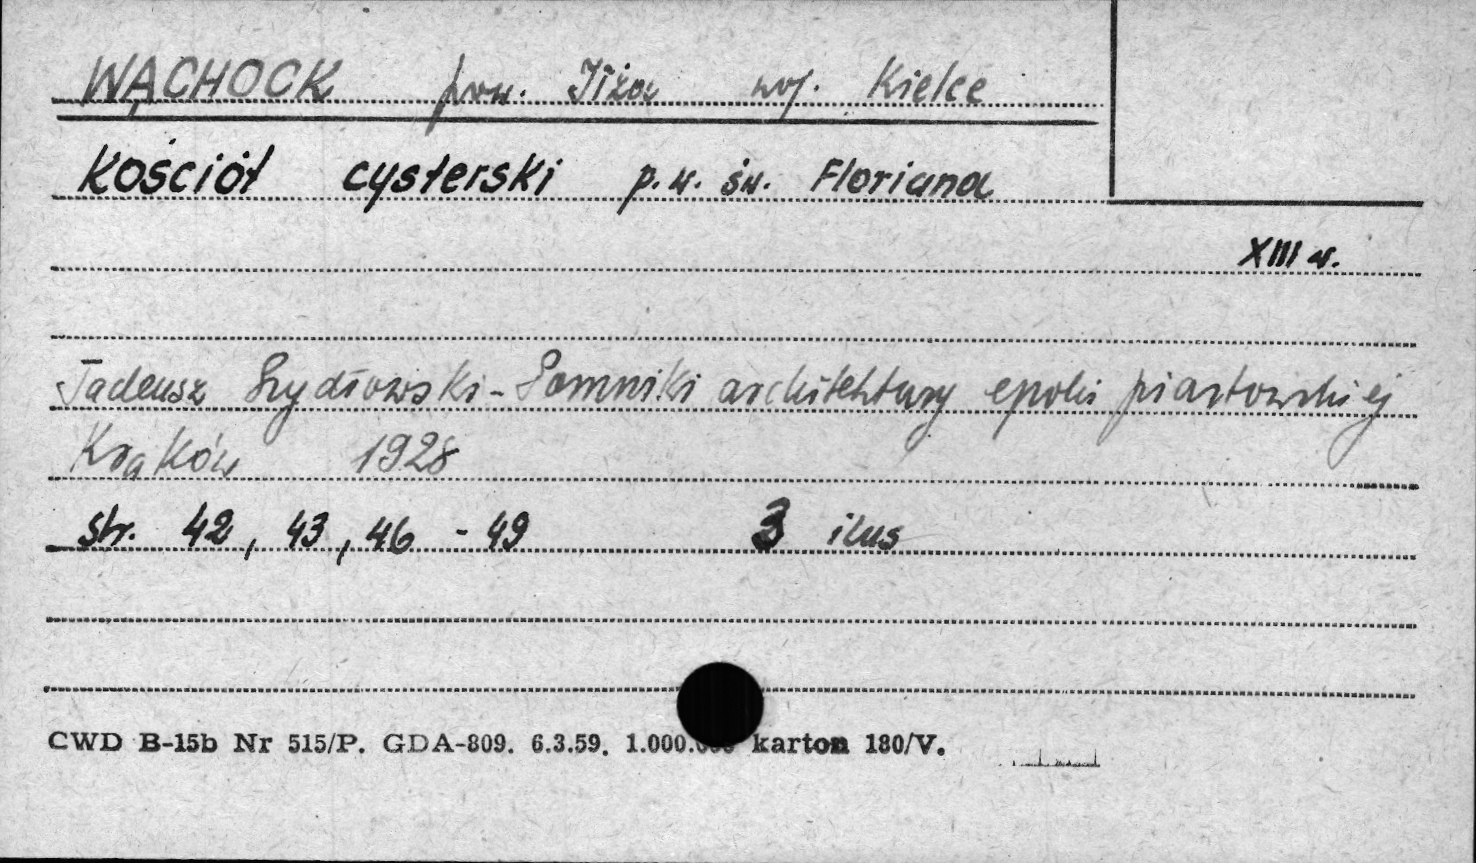 WĄCHOCK pow. Iłża woj. Kielce
Kościół cysterski p.w. św. Floriana
XIII w.
Tadeusz Szydłowski - Pomniki architektury epoki piastowskiej
Kraków 1928
str. 42, 43, 46 - 49 3 ilus
CWD B-15b Nr 515/P. GDA-809. 6.3.59. 1.000.000 karton 180/V.